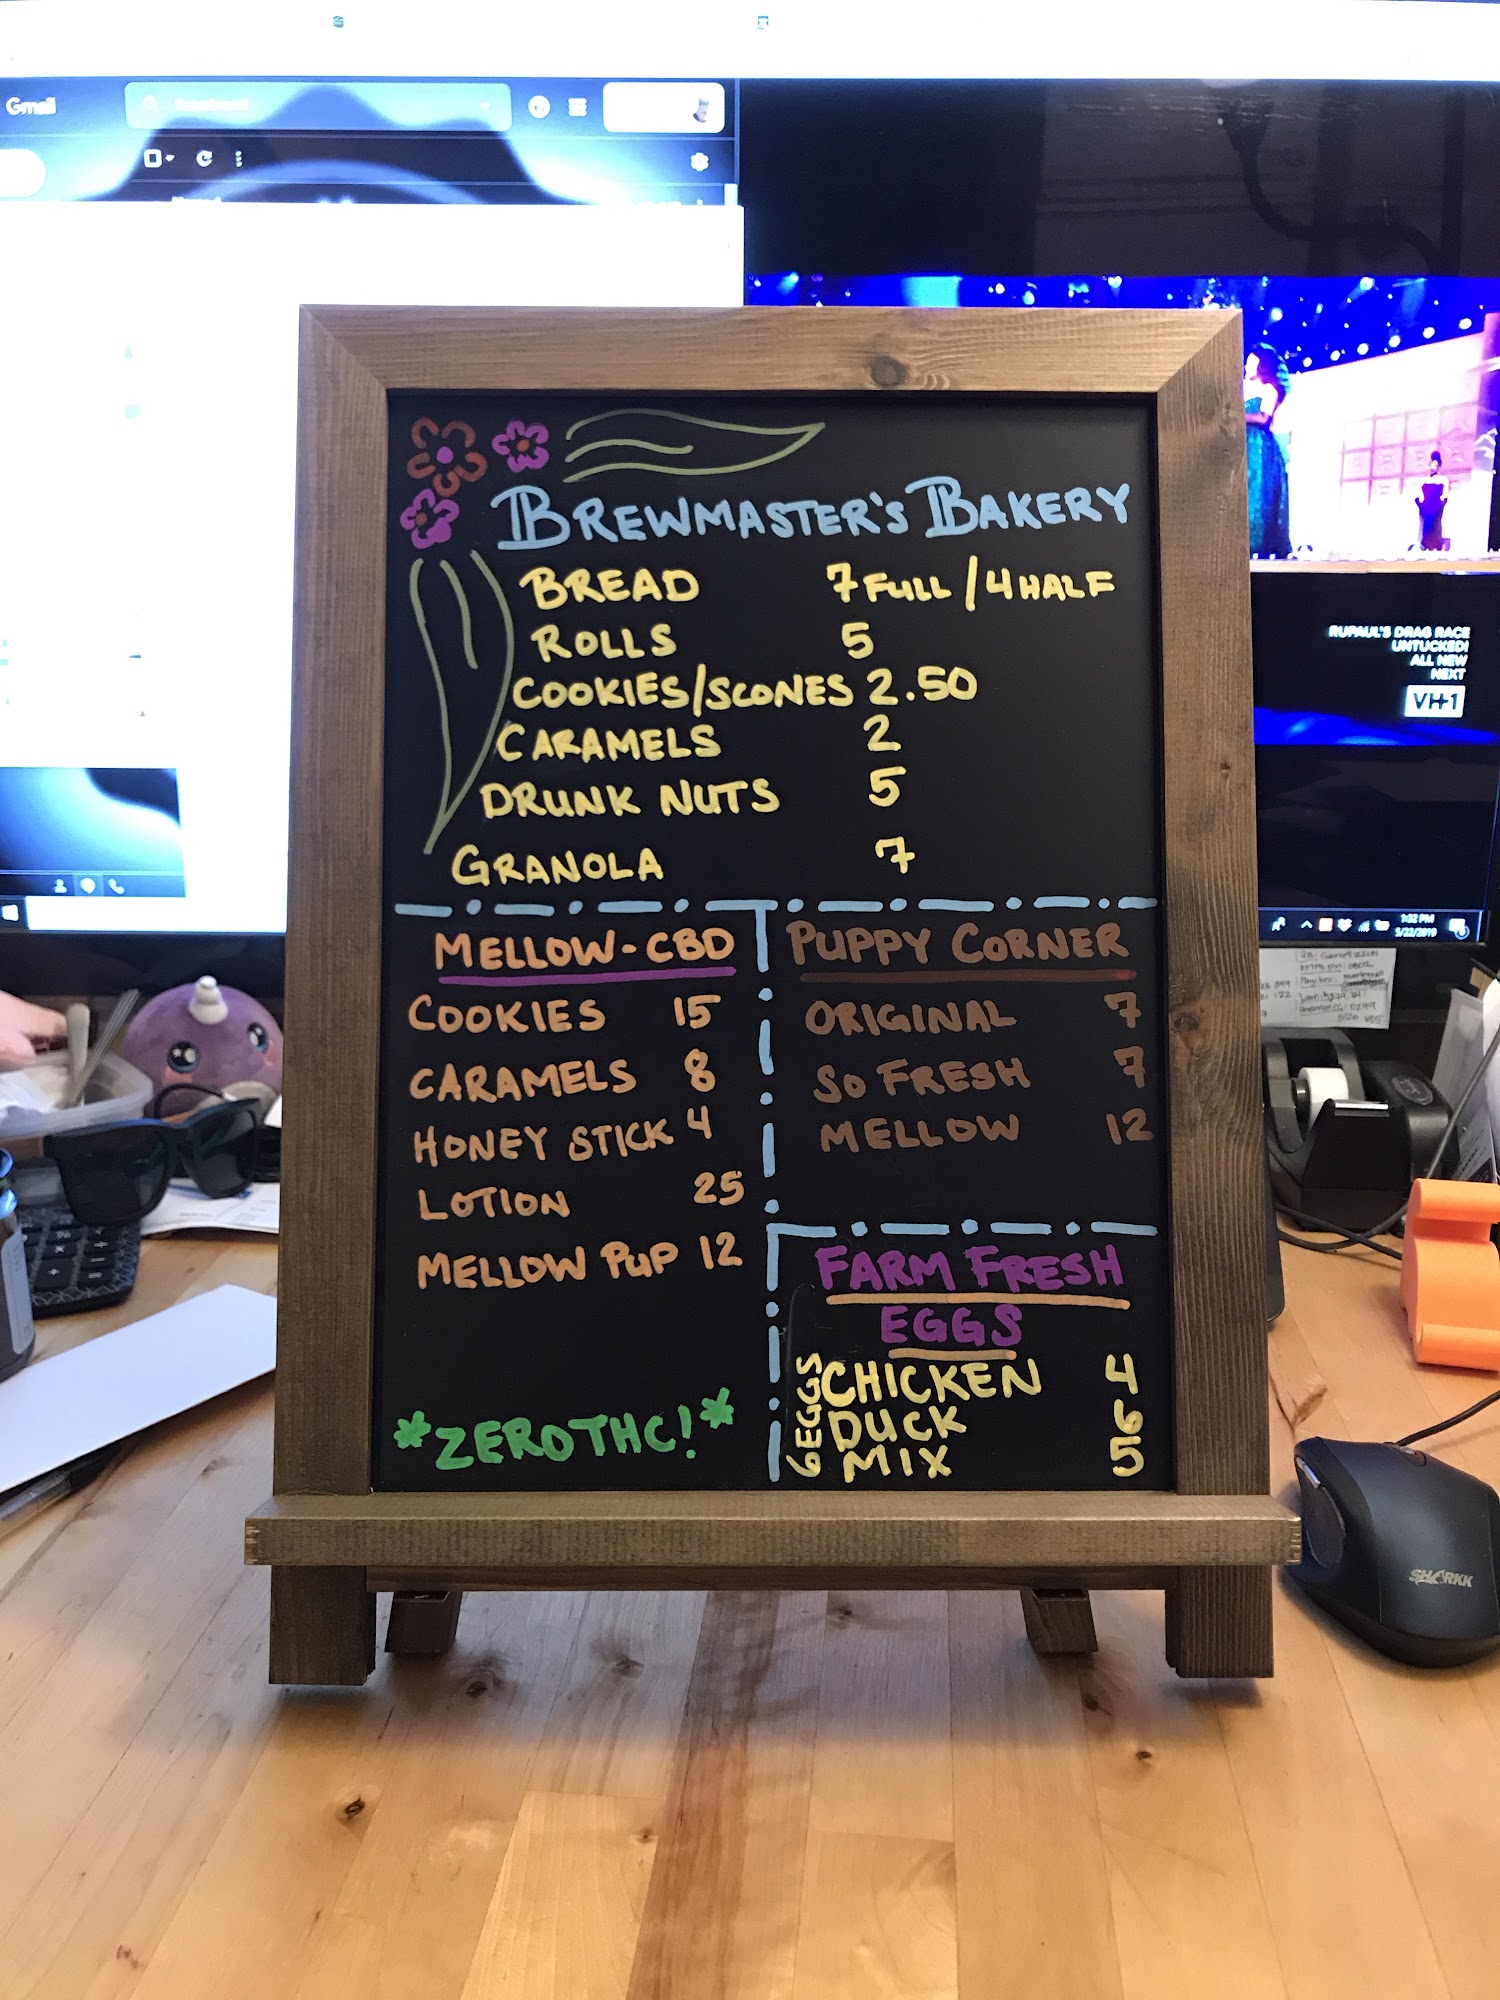 Gmail
BREWMASTER'S BAKERY
BREAD 7 FULL / 4 HALF
ROLLS 5
COOKIES/SCONES 2.50
CARAMELS 2
DRUNK NUTS 5
GRANOLA 7
MELLOW-CBD
COOKIES 15
CARAMELS 8
HONEY STICK 4
LOTION 25
MELLOW PUP 12
*ZERO THC!*
PUPPY CORNER
ORIGINAL 7
SO FRESH 7
MELLOW 12
FARM FRESH
EGGS
6 EGGS
CHICKEN 4
DUCK 6
MIX 5
RUPAUL'S DRAG RACE
UNTUCKED!
ALL NEW
NEXT
VH1
1:32 PM
5/22/2019
SHARKK